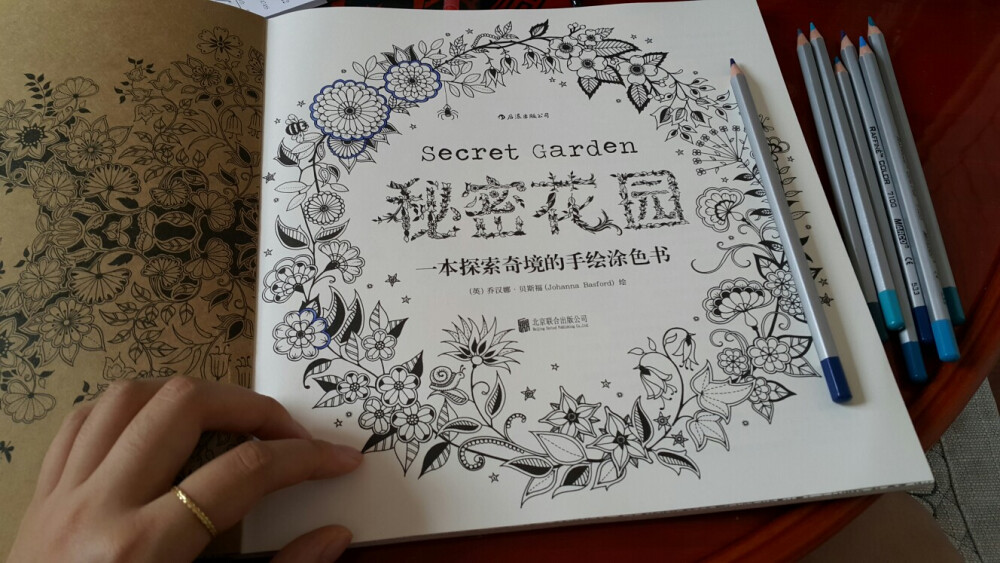 后浪出版公司
Secret Garden
秘密花园
一本探索奇境的手绘涂色书
(英) 乔汉娜·贝斯福 (Johanna Basford) 绘
北京联合出版公司
Beijing United Publishing Co.,Ltd.
RAFFINE